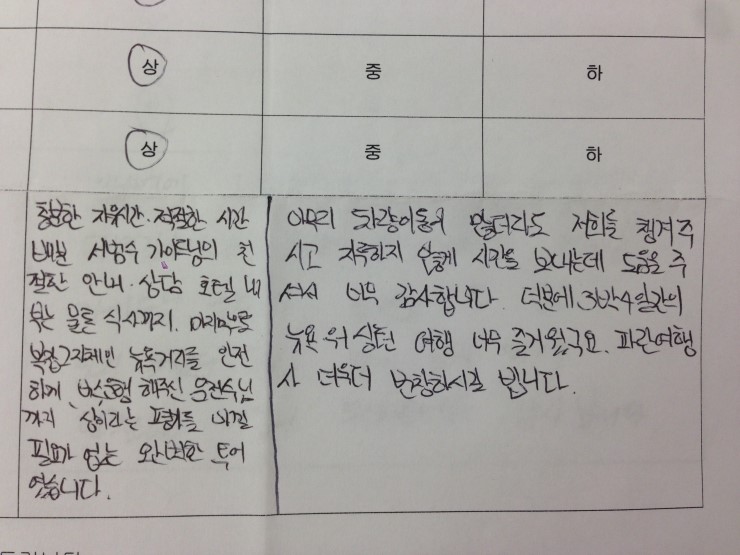 상 중 하
상 중 하
충분한 자유시간·적절한 시간
배분 서창수 가이드님의 친
절한 안내·상담 호텔 내
부는 물론 식사까지. 마지막으로
복잡그자체인 뉴욕거리를 안전
하게 버스운행 해주신 운전수님
까지 '상'이라는 평가를 아낄
필요가 없는 완벽한 투어
였습니다.
아무리 차량이동이 많더라도 저희를 챙겨주
시고 지루하지 않게 시간을 보내는데 도움을 주
셔서 너무 감사합니다. 덕분에 3박4일간의
뉴욕 워싱턴 여행 너무 즐거웠구요. 파란여행
사 더욱더 번창하시길 빕니다.